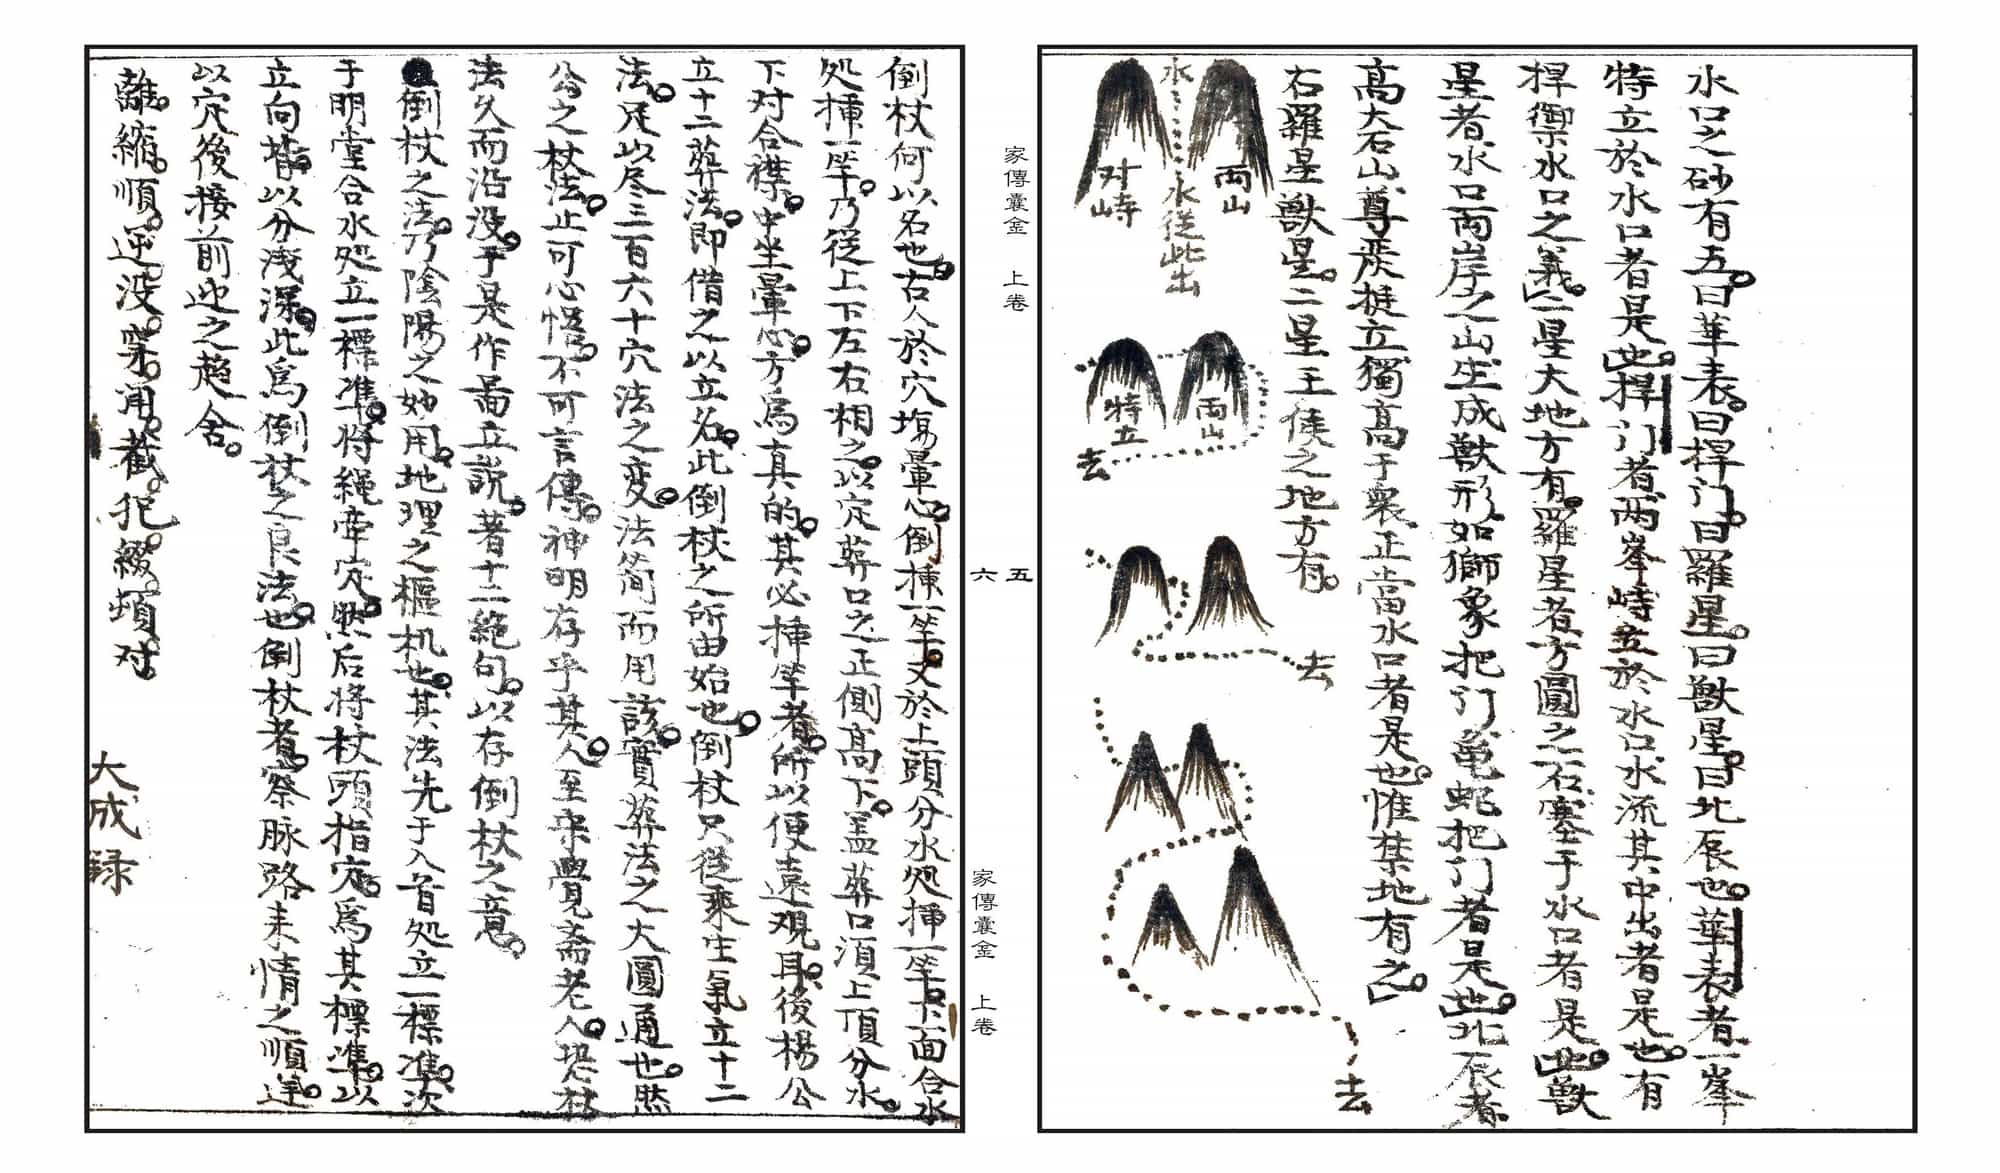 水口之砂有五曰華表曰捍门曰羅星曰獸星曰北辰也華表者一峯
特立於水口者是也捍门者两峯峙立於水口水流其中出者是也有
捍禦水口之義二星大地方有羅星者方圓之石塞于水口者是也獸
星者水口両岸之山生成獸形如獅象把门龟蛇把门者是也北辰者
高大石山尊嚴挺立獨高于衆正當水口者是也惟禁地有之
右羅星獸星二星王侯之地方有
両山
水
水從此出
对峙
両山
特立
去
去
去
家傳囊金 上卷
五
六
家傳囊金 上卷
倒杖何以名也古人於穴場暈心倒揷一竿又於上頭分水処揷一竿下面合水
処揷一竿乃從上下左右相之以定葬口之正側高下盖葬口須上頂分水
下对合襟中坐暈心方爲真的其必揷竿者所以便遠观耳後楊公
立十二葬法即借之以立名此倒杖之所由始也倒杖只從乘生氣立十二
法足以尽三百六十穴法之变法简而用該實葬法之大圓通也然
公之杖法止可心悟不可言傳神明存乎其人至宋覺斋老人恐杖
法久而沿没于是作畐立説著十二絶句以存倒杖之意
倒杖之法乃陰陽之妙用地理之樞机也其法先于入首処立一標准次
于明堂合水処立一標准将繩牽穴然后将杖頭指定爲其標准以
立向皆以分浅深此爲倒杖之良法也倒杖者察脉路来情之順逆
以穴後接前迎之趋舍
離縮順逆没穿开截犯綴頓对
大成録